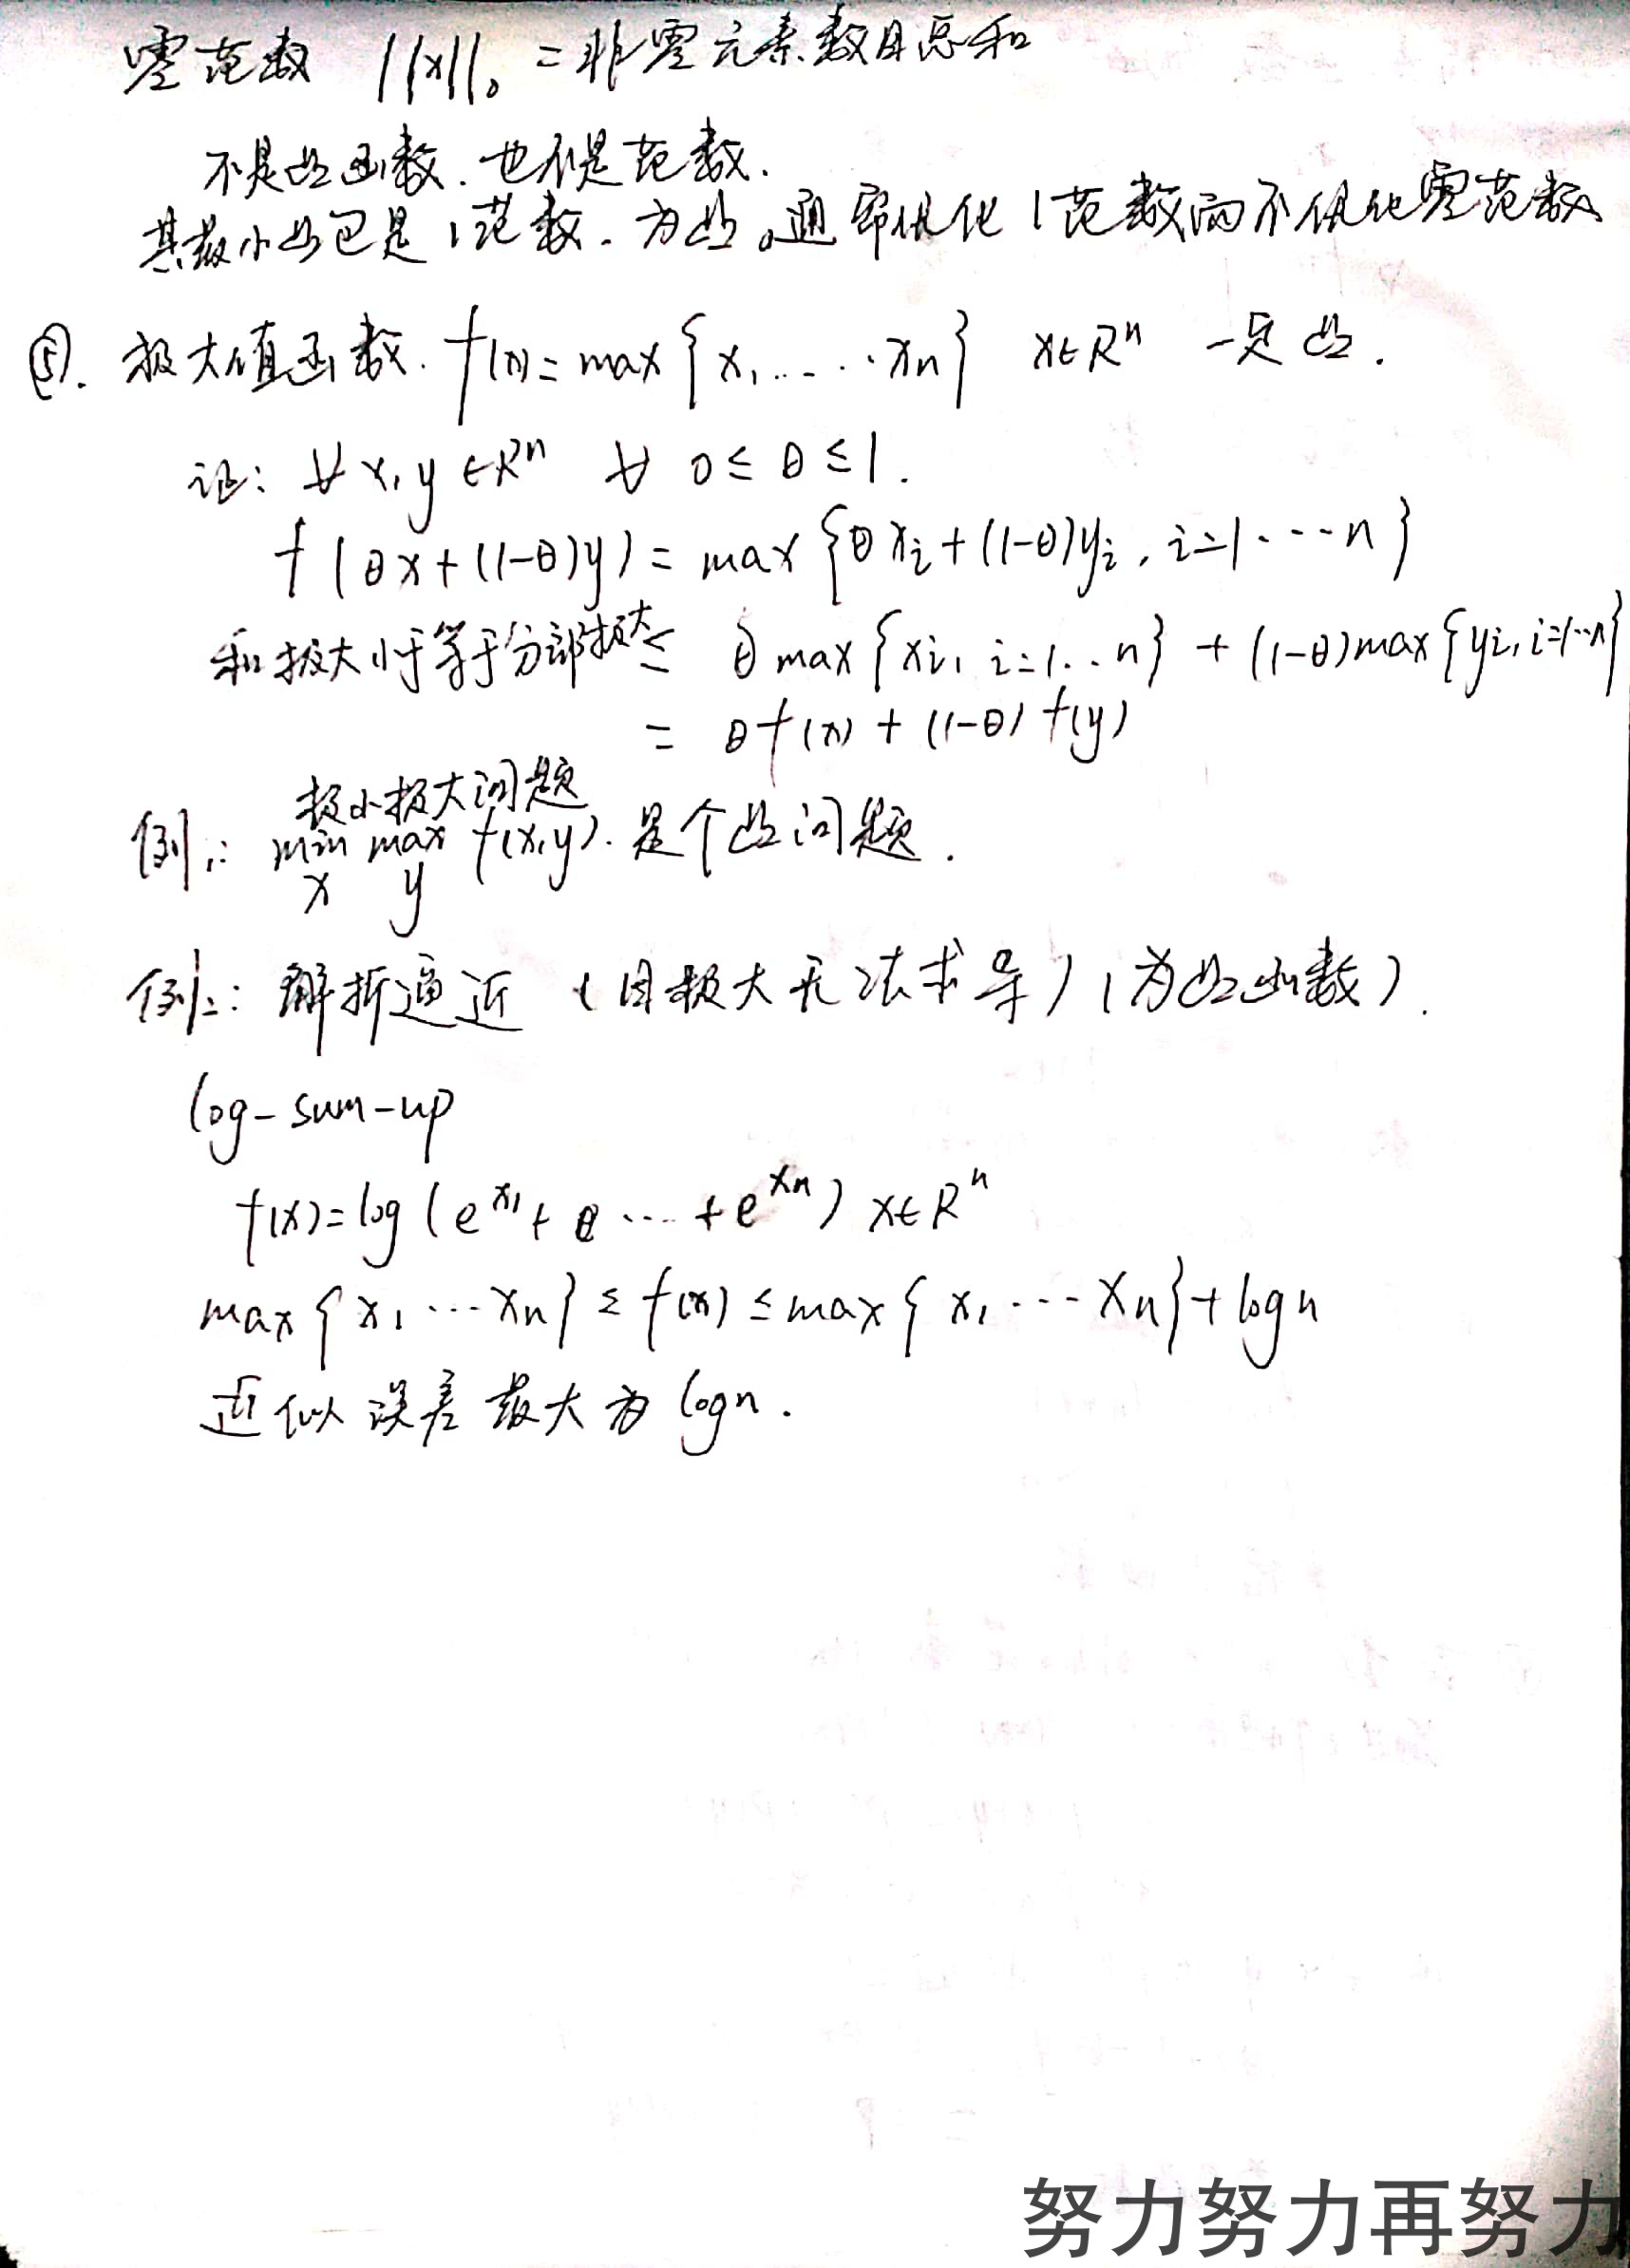 零范数 ||x||₀ = 非零元素数目总和
不是凸函数. 也不是范数.
其最小凸包是1范数. 为凸。通常优化1范数而不优化零范数
⑤. 极大值函数. f(x) = max {x₁ ... · xₙ} x∈Rⁿ 一定凸.
证: ∀ x, y ∈ Rⁿ ∀ 0 ≤ θ ≤ 1.
f(θx + (1-θ)y) = max {θxᵢ + (1-θ)yᵢ, i=1 ··· n}
和极大小于等于分部极大 ≤ θ max {xᵢ, i=1...n} + (1-θ) max {yᵢ, i=1...n}
= θf(x) + (1-θ) f(y)
极小极大问题
例1: min max f(x,y). 是个凸问题.
x y
例2: 解析逼近 (因极大无法求导) (为凸函数).
log-sum-up
f(x) = log (e^x₁ + e ... + e^xₙ) x∈Rⁿ
max {x₁ ··· xₙ} ≤ f(x) ≤ max {x₁ ··· xₙ} + log n
近似误差最大为 log n.
努力努力再努力